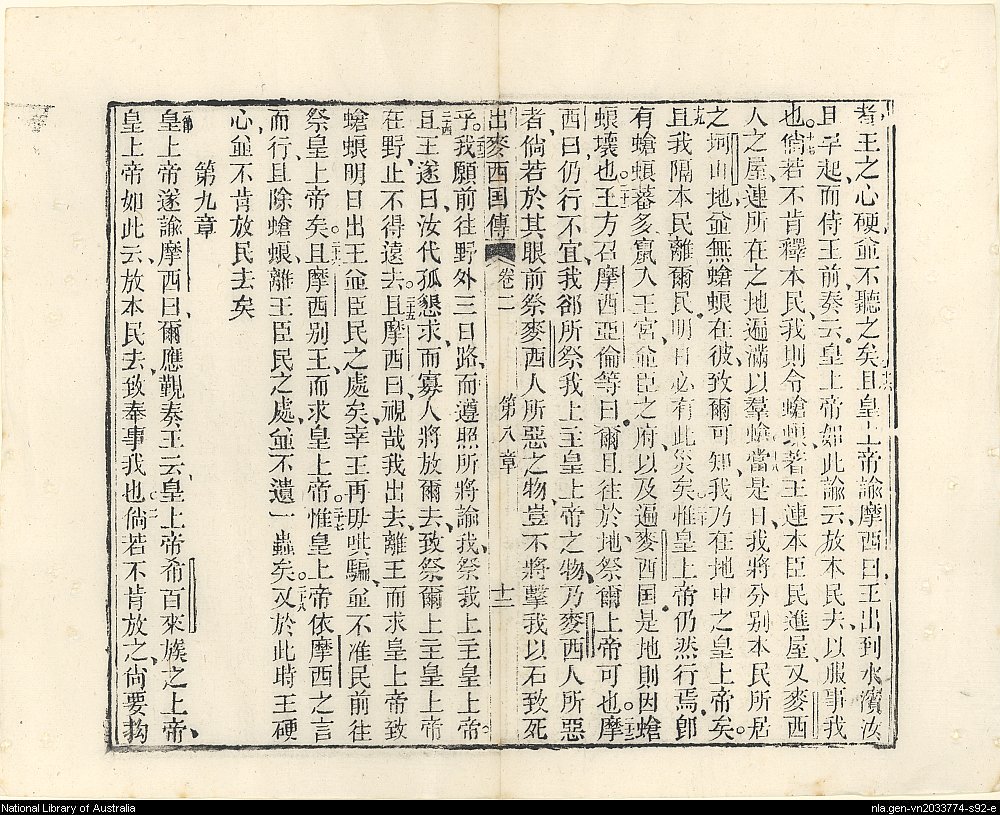 者王之心硬並不聽之矣且皇上帝諭摩西曰王出到水濱汝
且早起而侍王前奏云皇上帝如此諭云放本民去以服事我
也倘若不肯釋本民我則令螥蜋著王連本臣民進屋又麥西
人之屋連所在之地遍滿以羣螥當是日我將分別本民所居
之坷山地並無螥蜋在彼致爾可知我乃在地中之皇上帝矣
且我隔本民離爾民明日必有此災矣惟皇上帝仍然行焉卽
有螥蜋蕃多竄入王宮並臣之府以及遍麥西国是地則因螥
蜋壞也王方召摩西亞倫等曰爾且往於地祭爾上帝可也摩
西曰仍行不宜我郤所祭我上主皇上帝之物乃麥西人所惡
者倘若於其眼前祭麥西人所惡之物豈不將擊我以石致死
出麥西国傳 卷二 第八章 十三
乎我願前往野外三日路而遵照所將諭我祭我上主皇上帝
且王遂曰汝代孤懇求而寡人將放爾去致祭爾上主皇上帝
在野止不得遠去且摩西曰視哉我出去離王而求皇上帝致
螥蜋明日出王並臣民之處矣幸王再毋哄騙並不准民前往
祭皇上帝矣且摩西別王而求皇上帝惟皇上帝依摩西之言
而行且除螥蜋離王臣民之處並不遺一蟲矣又於此時王硬
心並不肯放民去矣
第九章
皇上帝遂諭摩西曰爾應覲奏王云皇上帝希百來族之上帝
皇上帝如此云放本民去致奉事我也倘若不肯放之尙要
National Library of Australia
nla.gen-vn2033774-s92-e